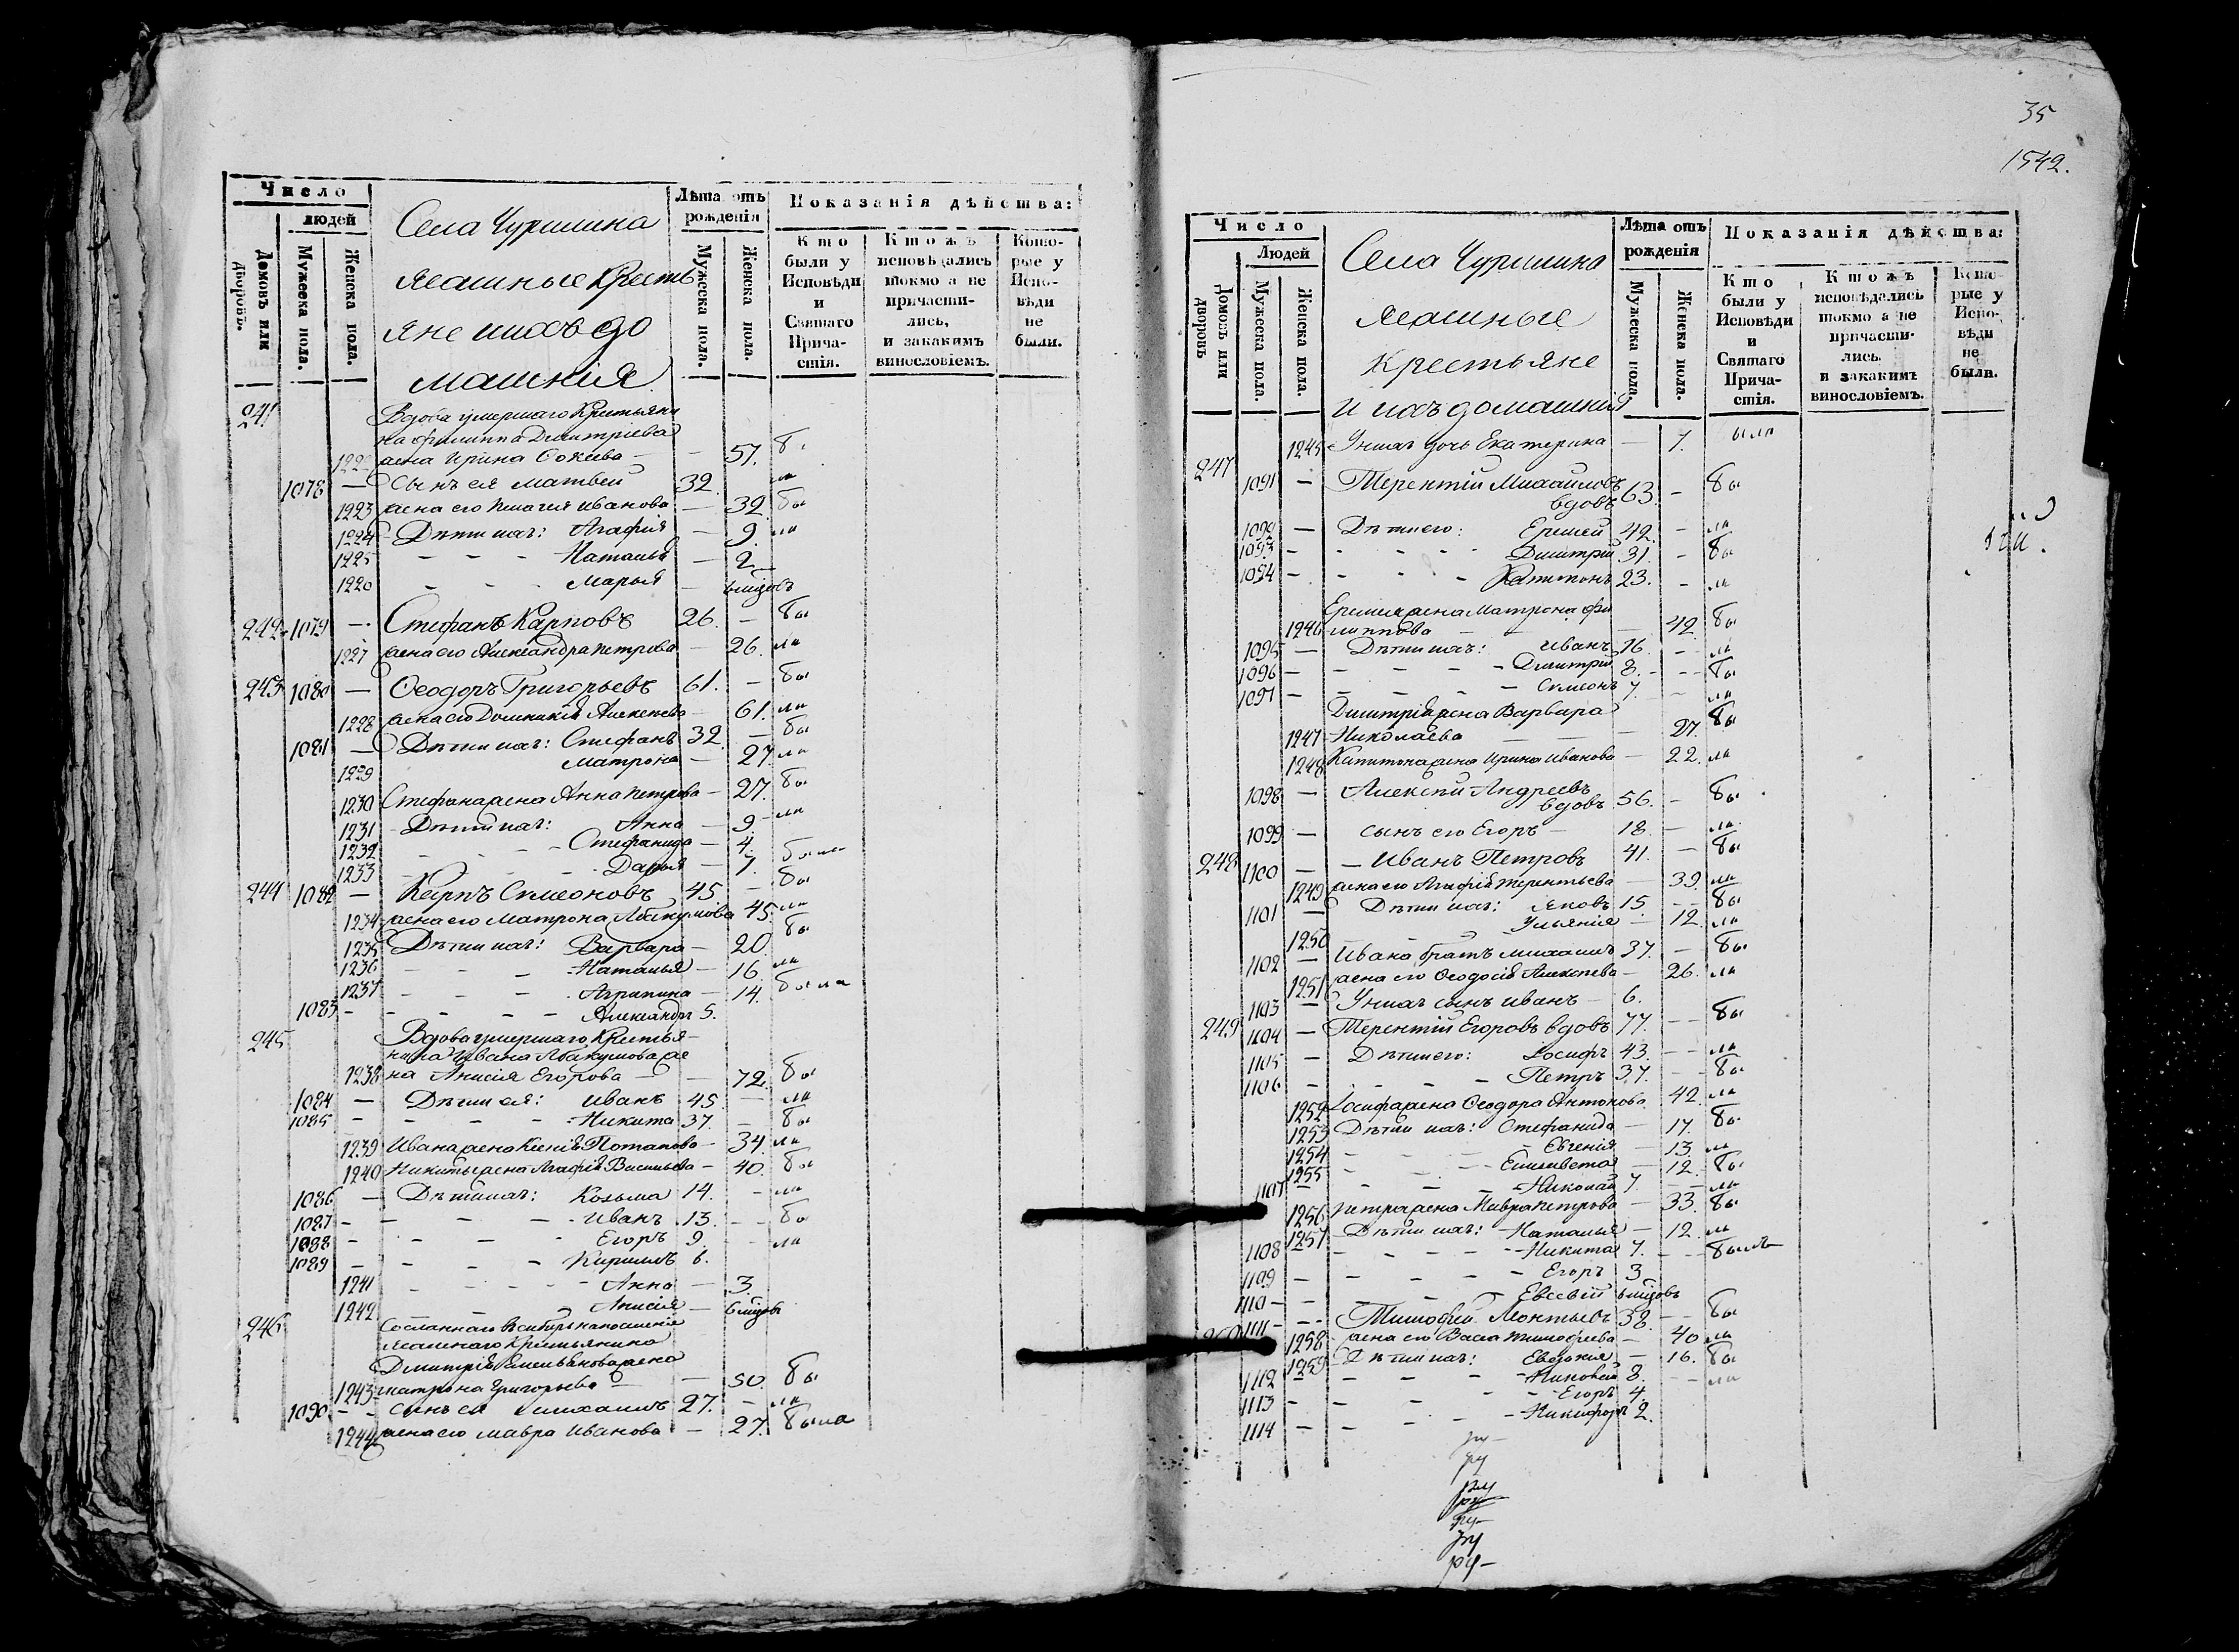 Число
людей
Домовъ или дворовъ.
Мужеска пола.
Женска пола.
Села Чуришина
ясашные Кресть
яне ихъ до
машнія
Лѣта отъ рожденія
Мужеска пола.
Женска пола.
Показанія дѣйства:
Кто были у Исповѣди и Святаго Причастія.
Ктожъ исповѣдались токмо а не причастились, и закакимъ винословіемъ.
Которые у Исповѣди не были.
241 Вдова умершаго Крестьяни
на Филиппа Дмитріева
жена Ирина Сокеева — — 57. б
1078 — Сынъ ея Матвей 32 ли
1223 жена его Иванова — 32. бы
1224 Дѣти ихъ: Агафія — 9. ли
1225 — — — Наталья — 2
1226 — — Марья —
242 1079 — Стефанъ Карповъ 26. — бы
1227 жена его Александра Петрова — 26. ли
243 1080 — Ѳеодоръ Григорьевъ 61. — бы
1228 жена его Домникія Алексеева 61. ли
1081 — Дѣти ихъ: Стефанъ 32 — бы
1229 Матрона — 27 ли
1230 Стефана жена Анна Петрова — 27. бы
1231 Дѣти ихъ: Анна — 9 ли
1232 — — — Стефанида — 4.
1233 — — — Дарья — 7. были
244 1082 — Карпъ Симеоновъ 45 — бы
1234 жена его Матрона Абакумова 45. ли
1235 Дѣти ихъ: Варвара — 20 бы
1236 — — — Наталья — 16 ли
1237 — — — Агрипина — 14. была
1083 — — — — Александръ 5.
245 Вдова умершаго Крестья-
нина Ивана Абакумова же
1238 на Анисія Егорова — — 72. бы
1084 — Дѣти ея: Иванъ 45 — ли
1085 — — — — Никита 37. — бы
1239 Ивана жена Ксенія Потапова — 34. ли
1240 Никиты жена Агафія Васильева — 40. бы
1086 — Дѣти ихъ: Козьма 14. — ли
1087 — — — — Иванъ 13. — — бы
1088 — — — Егоръ 9. — — ли
1089 — — — — Кирилъ 6.
1241 — — — — Анна — 3.
1242 — — Анисія — 6 мцовъ
246 Сосланнаго въ сибирь на поселеніе
ясашнаго Крестьянина
Дмитрія Емельянова жена
1243 матрона Григорьева — — 50. бы
1090 — — Сынъ ея михаилъ 27. — ли
1244 жена его мавра Иванова — 27. была
35
1542.
Число
Людей
Домовъ или дворовъ
Мужеска пола.
Женска пола.
Села Чуришина
ясашные
Крестьяне
и ихъ домашнія
Лѣта отъ рожденія
Мужеска пола.
Женска пола.
Показанія дѣйства:
Кто были у Исповѣди и Святаго Причастія.
Ктожъ исповѣдались токмо а не причастились. и закакимъ винословіемъ.
Которые у Исповѣди не были.
1245 У нихъ дочь Екатерина — 7. была
247 1091 — Терентій Михайловъ
вдовъ 63. — бы
1092 — Дѣти его: Ермей 42. — ли
1093 — — — — Дмитрій 31. — бы
1094 — — — — Капитонъ 23. — ли
Ермея жена Матрона Фи
1246 липпова — — — 42. бы
1095 — Дѣти ихъ: Иванъ 16. — — ли
1096 — — — — — Дмитрій 8. — — — бы
1097 — — — — — Симеонъ 7. — ли
Дмитрія жена Варвара
1247 Николаева — — — 27. бы
1248 Капитона жена Ирина Иванова — 22. ли
1098 — Алексій Андреевъ
вдовъ 56. — бы
1099 — сынъ его Егоръ — 18. — ли
248 1100 — — Иванъ Петровъ 41. — бы
1249 жена его Агафія Терентьева — 39. ли
1101 — Дѣти ихъ: Яковъ 15. — — бы
1250 Ульянія — 12. ли
1102 — Ивана братъ михаилъ 37. — бы
1251 жена его Ѳеодосія Алексеева — 26. ли
1103 — У нихъ сынъ иванъ — 6.
249 1104 — Терентій Егоровъ вдовъ 77. — — бы
1105 — Дѣти его: Іосифъ 43. — — ли
1106 — — — — — Петръ 37. — — бы
1252 Іосифа жена Ѳеодора Антонова 42. ли
1253 Дѣти ихъ: Стефанида — 17. бы
1254 — — — — Евгенія — 13 ли
1255 — — — — Елизавета — 12. бы
1107 — — — — Николай 7. — — ли
1256 Петра жена Мавра Петрова — 33. бы
1257 Дѣти ихъ: Наталья — 12. ли
1108 — — — — — Никита 7. — — былъ
1109 — — — — — Егоръ 3
1110 — — — — Евсевій мцовъ
1111 — — Тимофей Леонтьевъ 38. — — бы
1258 жена его Васса Тимофеева — 40 ли
1259 Дѣти ихъ: Евдокия — 16. бы
1112 — — — — 8. — — ли
1113 — — — — — Егоръ 4.
1114 — — — — — Никифоръ 2.